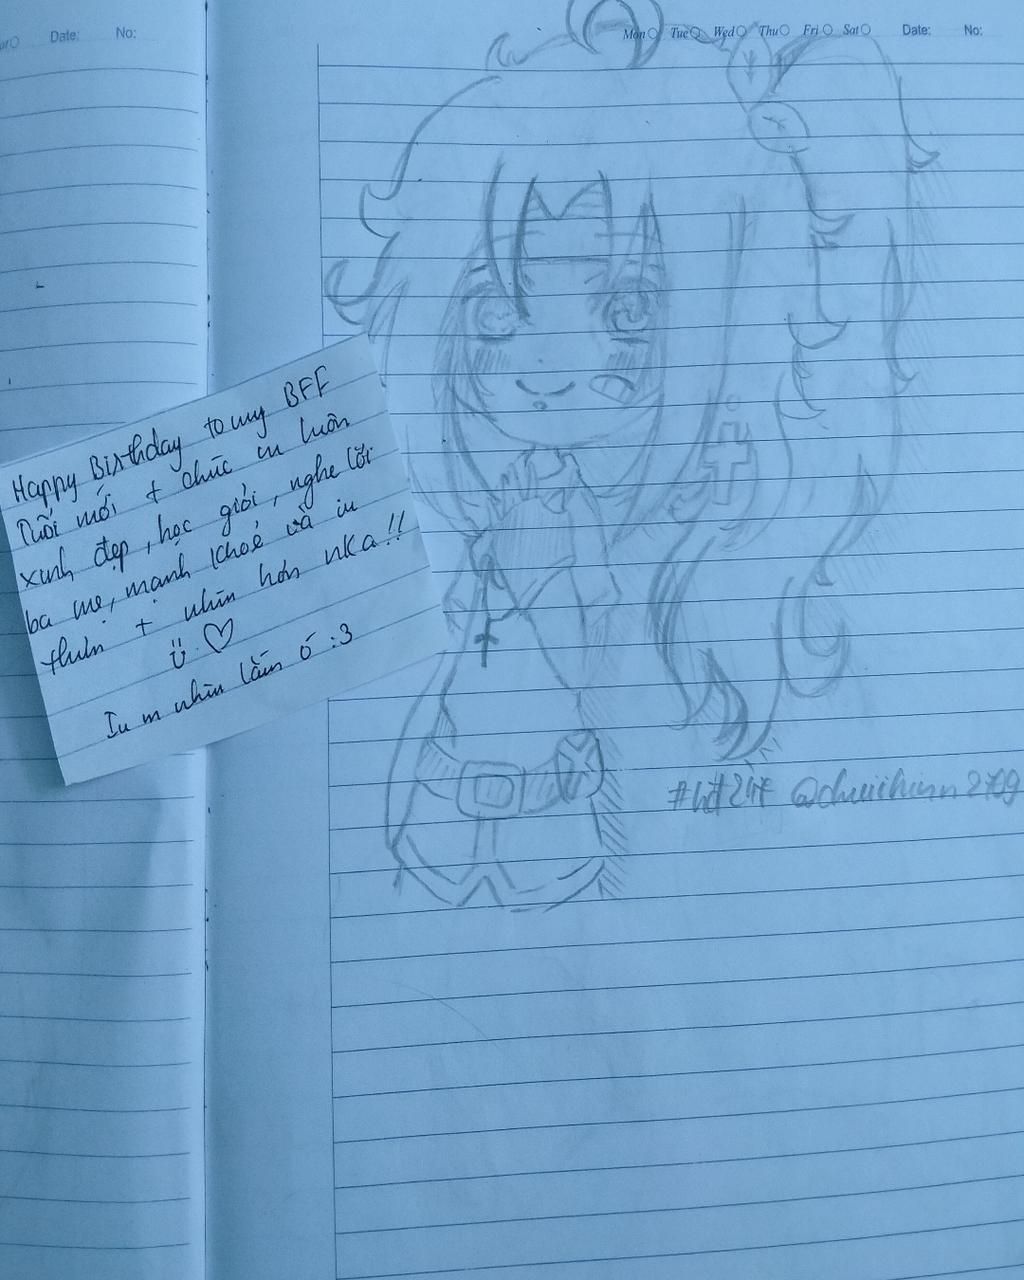 Date: No:
Mon Tue Wed Thu Fri Sat Date: No:
Happy Birthday to my BFF
Tuổi mới t chúc m luôn
xinh đẹp, học giỏi, nghe lời
ba mẹ, mạnh khoẻ và iu
thươn t nhìn hơn nka!!
Iu m nhìn lắm ó :3